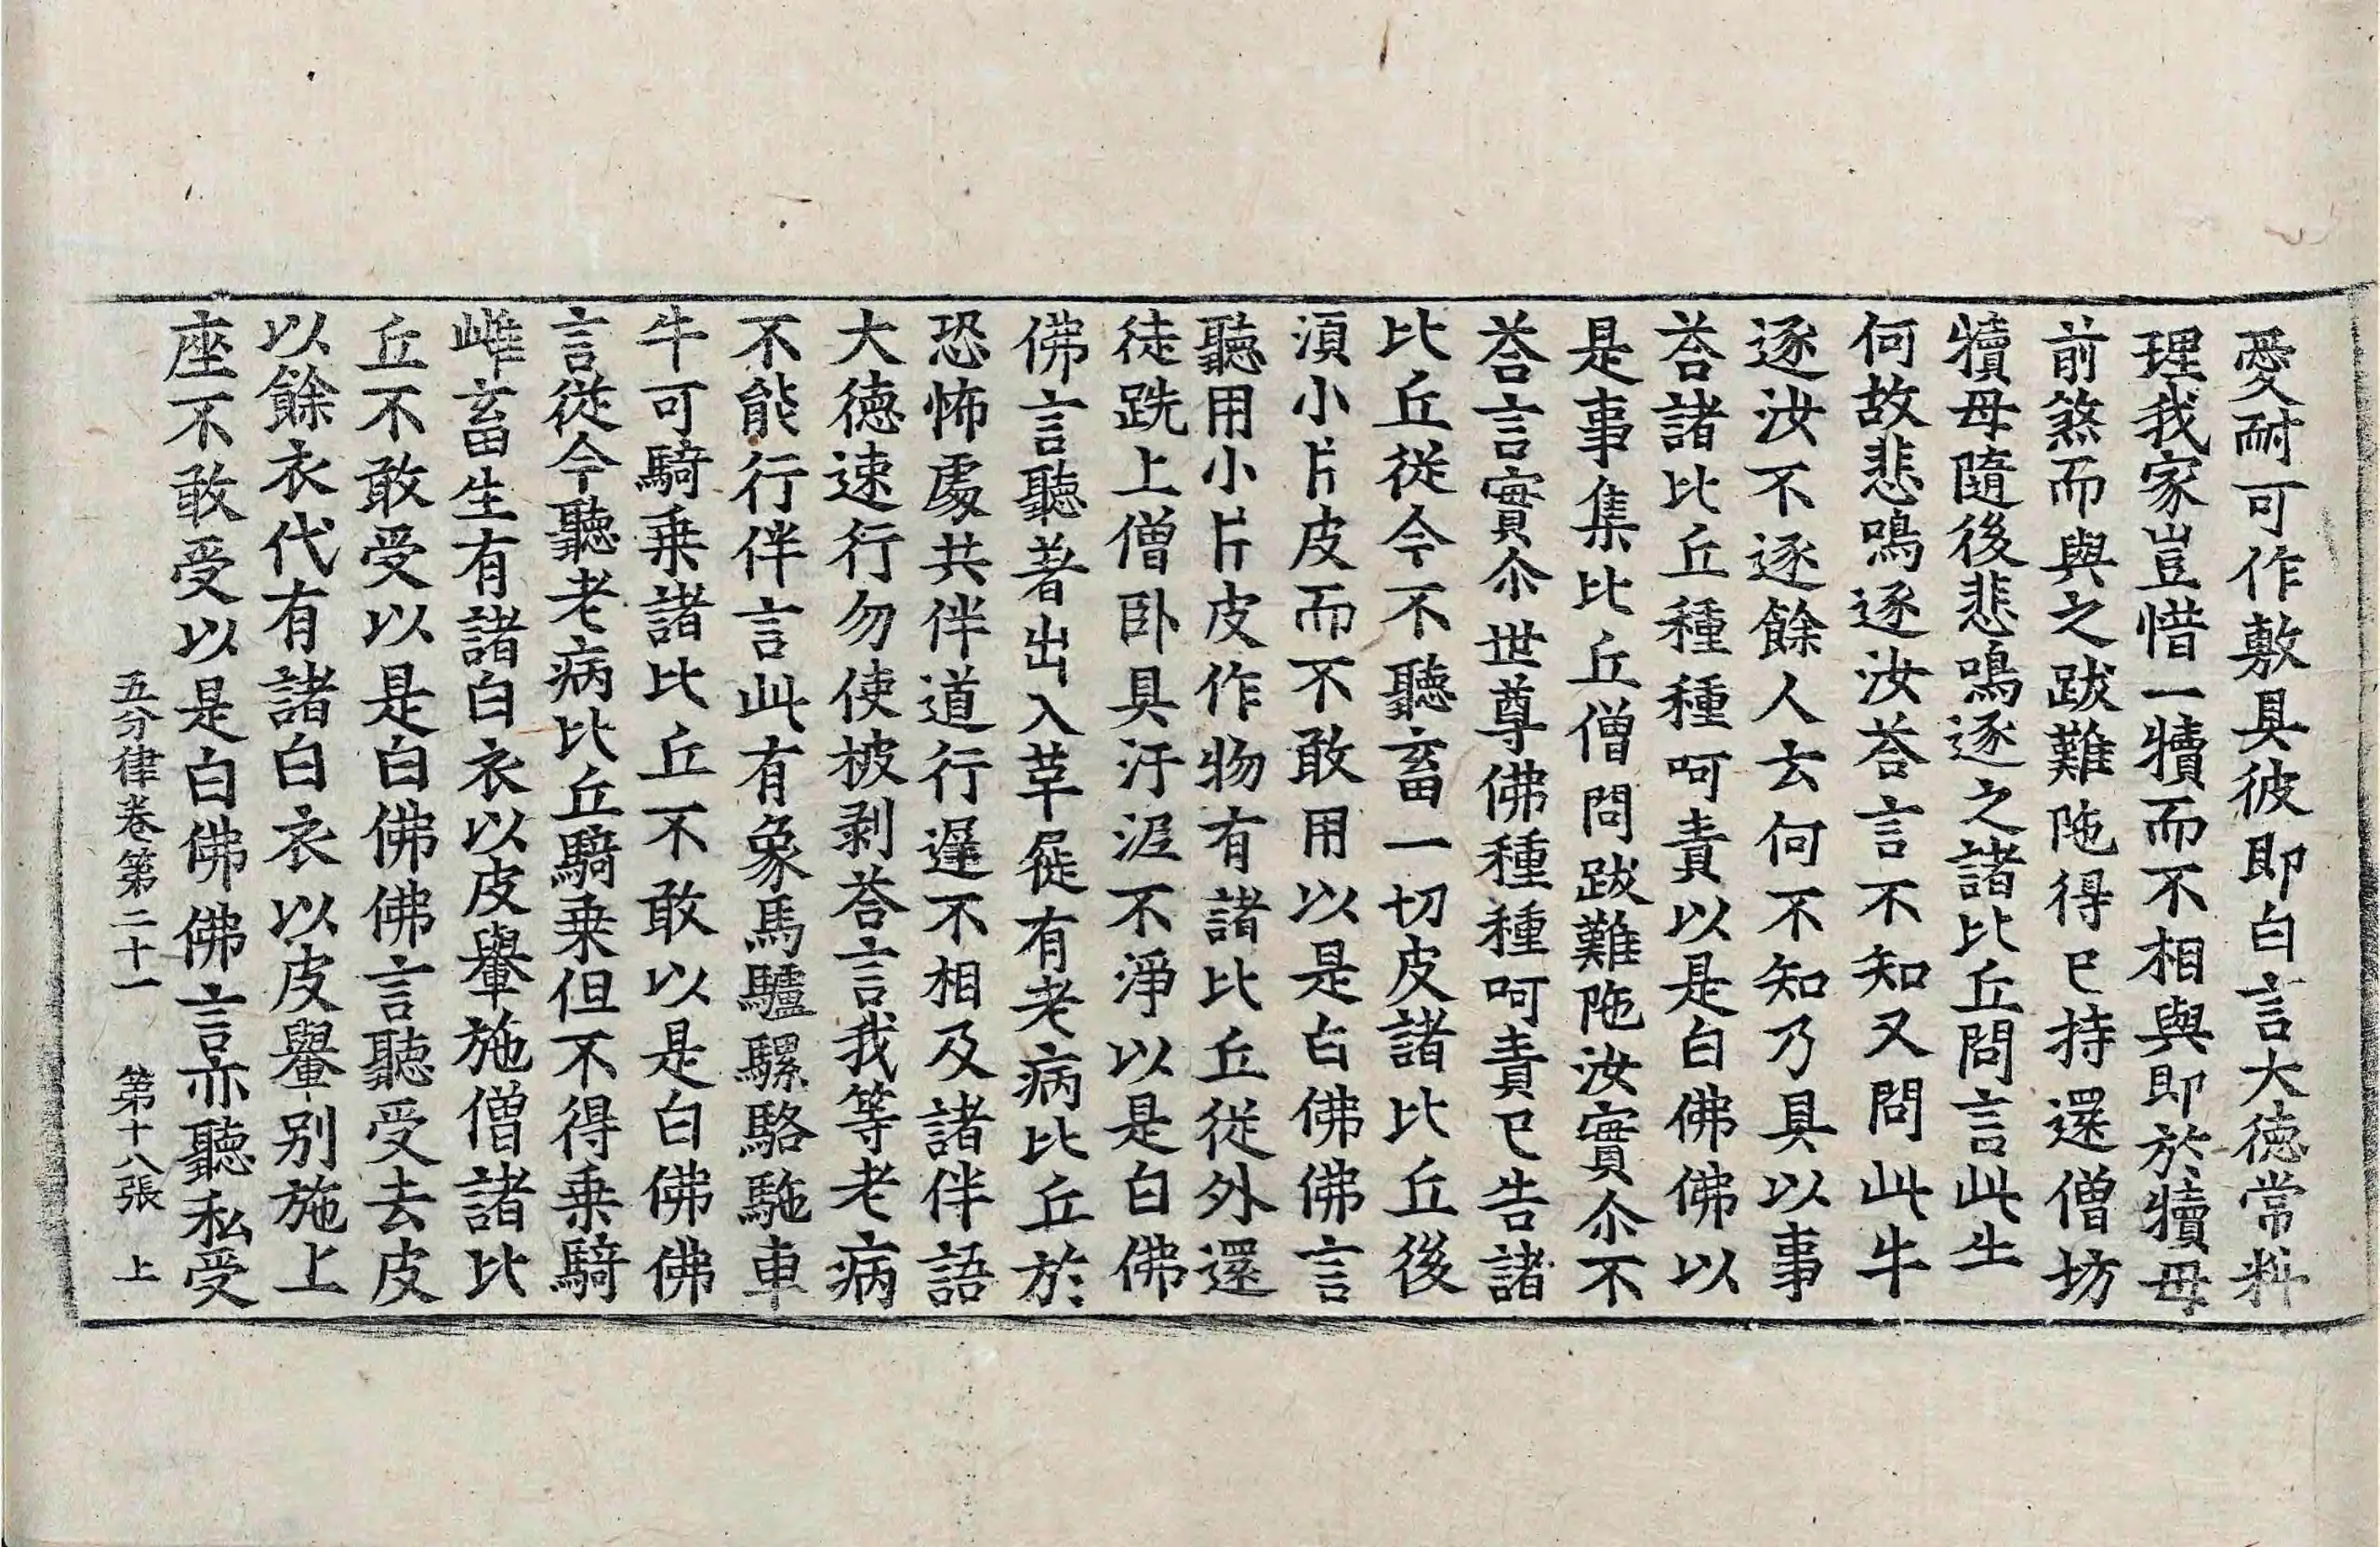 愛耐可作敷具彼即白言大徳常料
理我家豈惜一犢而不相與即於犢母
前煞而與之跋難陁得已持還僧坊
犢母隨後悲鳴逐之諸比丘問言此牛
何故悲鳴逐汝荅言不知又問此牛
逐汝不逐餘人去何不知乃具以事
荅諸比丘種種呵責以是白佛佛以
是事集比丘僧問跋難陁汝實尒不
荅言實尒世尊佛種種呵責已告諸
比丘從今不聽畜一切皮諸比丘後
湏小片皮而不敢用以是白佛佛言
聽用小片皮作物有諸比丘從外還
徒跣上僧卧具汙泥不淨以是白佛
佛言聽著出入革屣有老病比丘於
恐怖處共伴道行遲不相及諸伴語
大徳速行勿使被剥荅言我等老病
不能行伴言此有象馬驢騾駱駞車
牛可騎乗諸比丘不敢以是白佛佛
言從今聽老病比丘騎乗但不得乗騎
雌畜生有諸白衣以皮轝施僧諸比
丘不敢受以是白佛佛言聽受去皮
以餘衣代有諸白衣以皮轝別施上
座不敢受以是白佛佛言亦聽私受
五分律卷第二十一 第十八張 上